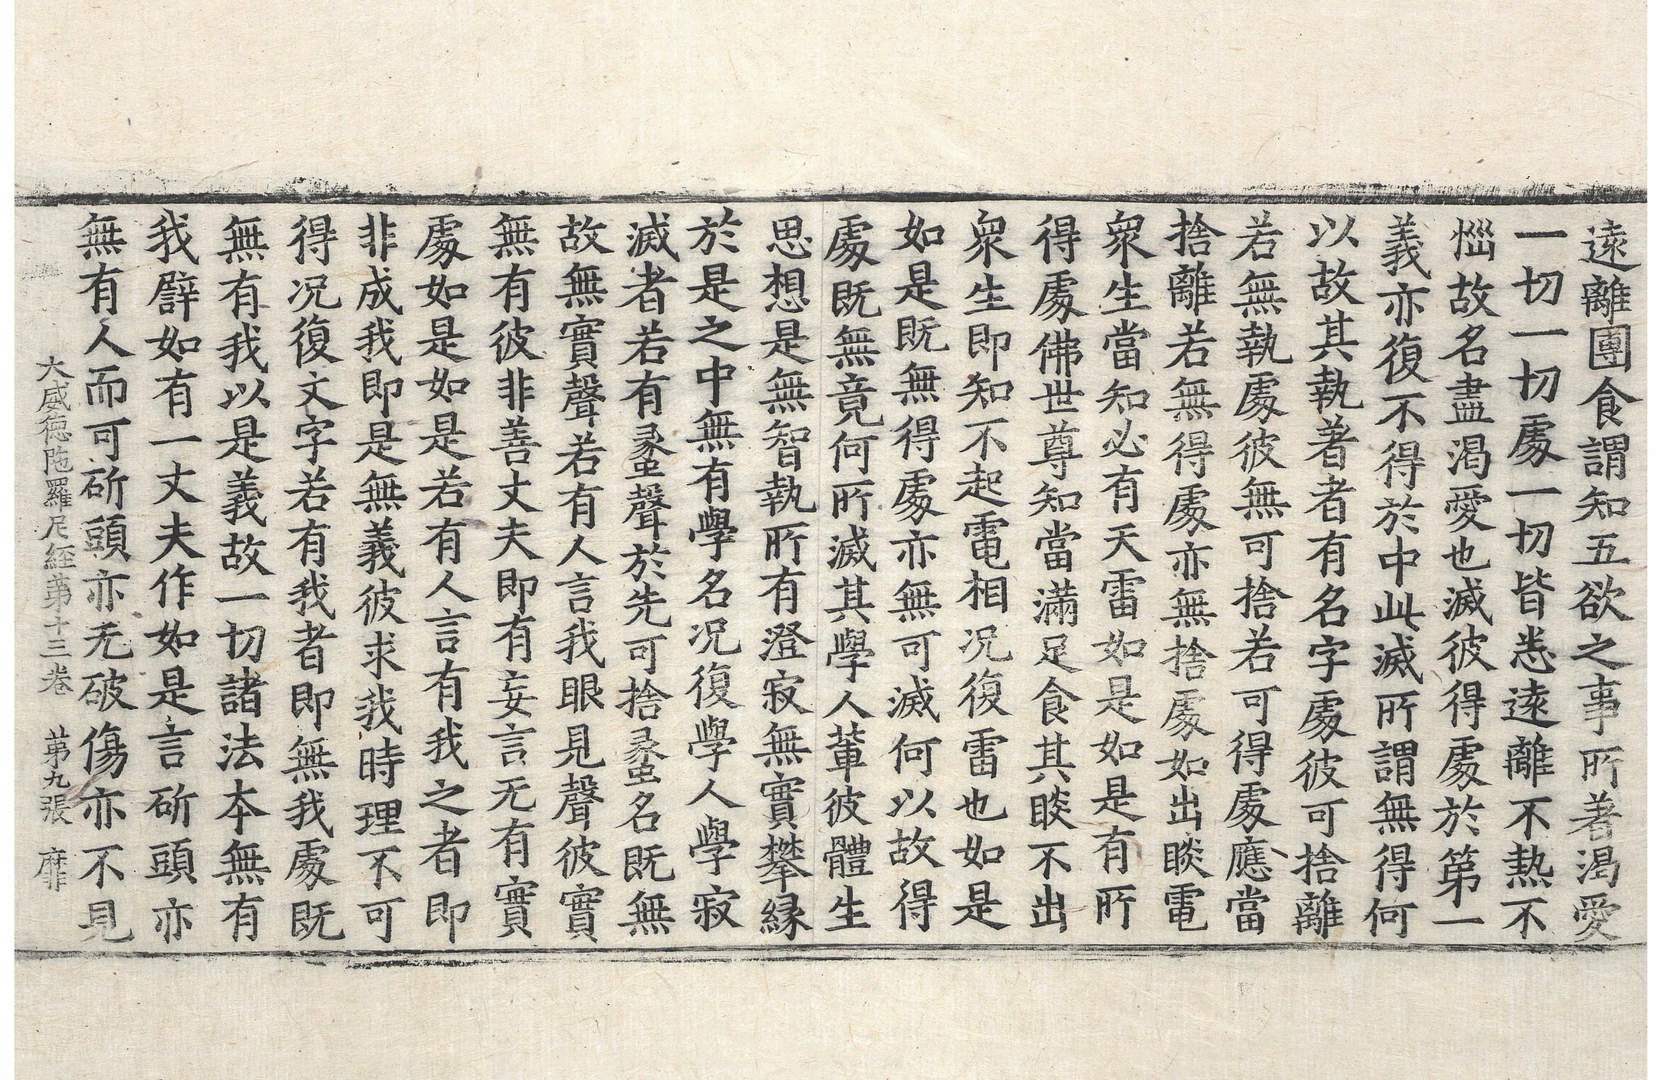 遠離團食謂知五欲之事所著渴愛
一切一切處一切皆悉遠離不熱不
惱故名盡渴愛也滅彼得處於第一
義亦復不得於中此滅所謂無得何
以故其執著者有名字處彼可捨離
若無執處彼無可捨若可得處應當
捨離若無得處亦無捨處如出睒電
衆生當知必有天雷如是如是有所
得處佛世尊知當滿足食其睒不出
衆生即知不起電相况復雷也如是
如是既無得處亦無可滅何以故得
處既無竟何所滅其學人輩彼體生
思想是無智執所有澄寂無實攀縁
於是之中無有學名况復學人學寂
滅者若有蠡聲於先可捨蠡名既無
故無實聲若有人言我眼見聲彼實
無有彼非善丈夫即有妄言无有實
處如是如是若有人言有我之者即
非成我即是無義彼求我時理不可
得况復文字若有我者即無我處既
無有我以是義故一切諸法本無有
我譬如有一丈夫作如是言斫頭亦
無有人而可斫頭亦无破傷亦不見
大威德陁羅尼經第十三卷 第九張 靡